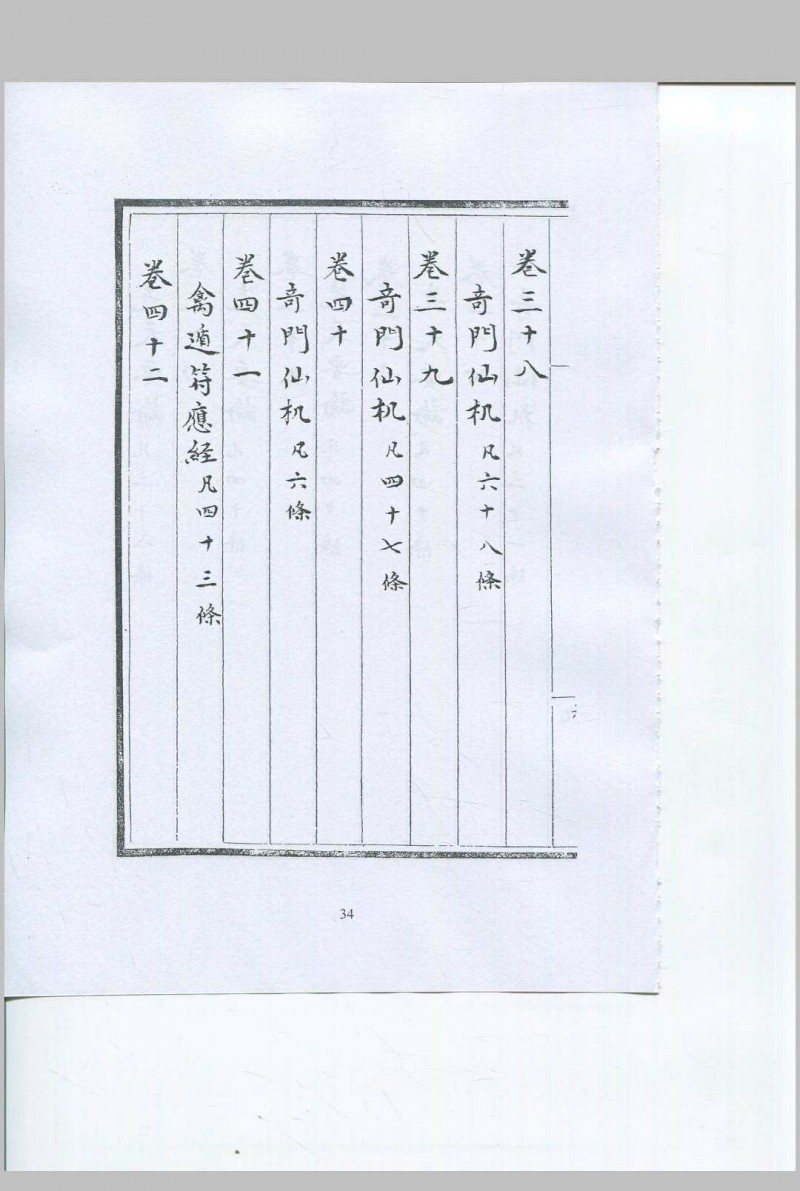 卷三十八
奇門仙机凡六十八條
卷三十九
奇門仙机凡四十七條
卷四十
奇門仙机凡六條
卷四十一
禽遁符應経凡四十三條
卷四十二
34